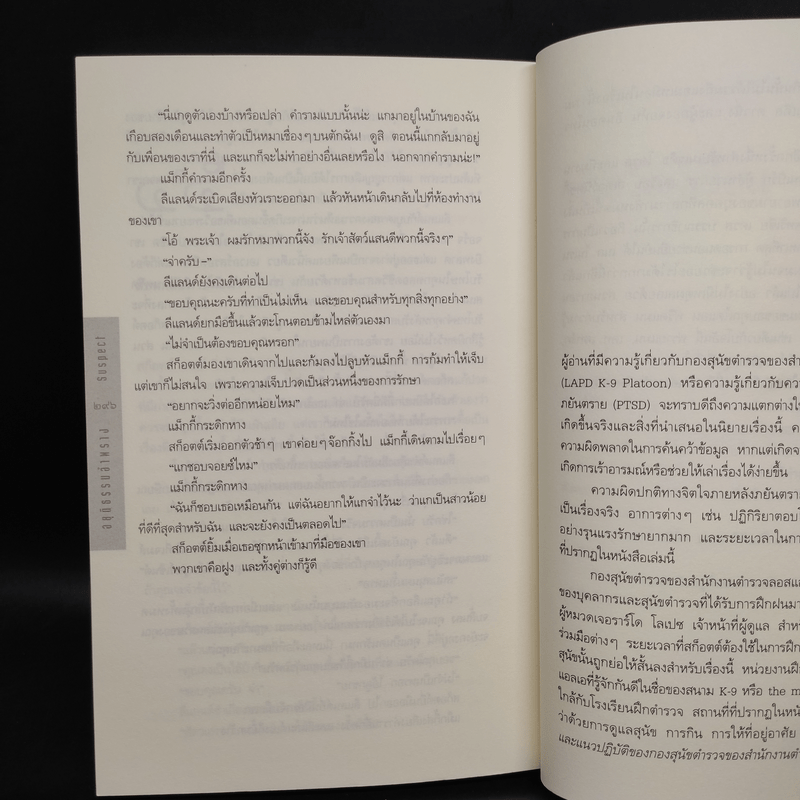 “นี่แกดูตัวเองบ้างหรือเปล่า คำรามแบบนั้นน่ะ แกมาอยู่ในบ้านของฉัน
เกือบสองเดือนและทำตัวเป็นหมาเชื่องๆบนตักฉัน! ดูสิ ตอนนี้แกกลับมาอยู่
กับเพื่อนของเราที่นี่ และแกก็จะไม่ทำอย่างอื่นเลยหรือไง นอกจากคำรามน่ะ!”
แม็กกี้คำรามอีกครั้ง
ลีแลนด์ระเบิดเสียงหัวเราะออกมา แล้วหันหน้าเดินกลับไปที่ห้องทำงาน
ของเขา
“โอ้ พระเจ้า ผมรักหมาพวกนี้จัง รักเจ้าสัตว์แสนดีพวกนี้จริงๆ”
“จ่าครับ–”
ลีแลนด์ยังคงเดินต่อไป
“ขอบคุณนะครับที่ทำเป็นไม่เห็น และขอบคุณสำหรับทุกสิ่งทุกอย่าง”
ลีแลนด์ยกมือขึ้นแล้วตะโกนตอบข้ามไหล่ตัวเองมา
“ไม่จำเป็นต้องขอบคุณหรอก”
สก็อตต์มองเขาเดินจากไปและก้มลงไปลูบหัวแม็กกี้ การก้มทำให้เจ็บ
แต่เขาก็ไม่สนใจ เพราะความเจ็บปวดเป็นส่วนหนึ่งของการรักษา
“อยากจะวิ่งต่ออีกหน่อยไหม”
แม็กกี้กระดิกหาง
สก็อตต์เริ่มออกตัวช้าๆ เขาค่อยๆจ๊อกกิ้งไป แม็กกี้เดินตามไปเรื่อยๆ
“แกชอบจอยซ์ไหม”
แม็กกี้กระดิกหาง
“ฉันก็ชอบเธอเหมือนกัน แต่ฉันอยากให้แกจำไว้นะ ว่าแกเป็นสาวน้อย
ที่ดีที่สุดสำหรับฉัน และจะยังคงเป็นตลอดไป”
สก็อตต์ยิ้มเมื่อเธอซุกหน้าเข้ามาที่มือของเขา
พวกเขาคือฝูง และทั้งคู่ต่างก็รู้ดี
อสุนีธรรมอำพราง ๒๙๖ Suspect
ผู้อ่านที่มีความรู้เกี่ยวกับกองสุนัขตำรวจของสำ
(LAPD K-9 Platoon) หรือความรู้เกี่ยวกับควา
ภยันตราย (PTSD) จะทราบดีถึงความแตกต่างใน
เกิดขึ้นจริงและสิ่งที่นำเสนอในนิยายเรื่องนี้ ค
ความผิดพลาดในการค้นคว้าข้อมูล หากแต่เกิดจ
เกิดการเร้าอารมณ์หรือช่วยให้เล่าเรื่องได้ง่ายขึ้น
ความผิดปกติทางจิตใจภายหลังภยันตราย
เป็นเรื่องจริง อาการต่างๆ เช่น ปฏิกิริยาตอบโ
อย่างรุนแรงรักษายากมาก และระยะเวลาในกา
ที่ปรากฏในหนังสือเล่มนี้
กองสุนัขตำรวจของสำนักงานตำรวจลอสแ
ของบุคลากรและสุนัขตำรวจที่ได้รับการฝึกฝนมา
ผู้หมวดเจอราร์โด โลเปซ เจ้าหน้าที่ผู้ดูแล สำหร
ร่วมมือต่างๆ ระยะเวลาที่สก็อตต์ต้องใช้ในการฝึก
สุนัขนั้นถูกย่อให้สั้นลงสำหรับเรื่องนี้ หน่วยงานฝึ
แอลเอที่รู้จักกันดีในชื่อของสนาม K-9 หรือ the m
ใกล้กับโรงเรียนฝึกตำรวจ สถานที่ที่ปรากฏในหนั
ว่าด้วยการดูแลสุนัข การกิน การให้ที่อยู่อาศัย
และแนวปฏิบัติของกองสุนัขตำรวจของสำนักงานตำ